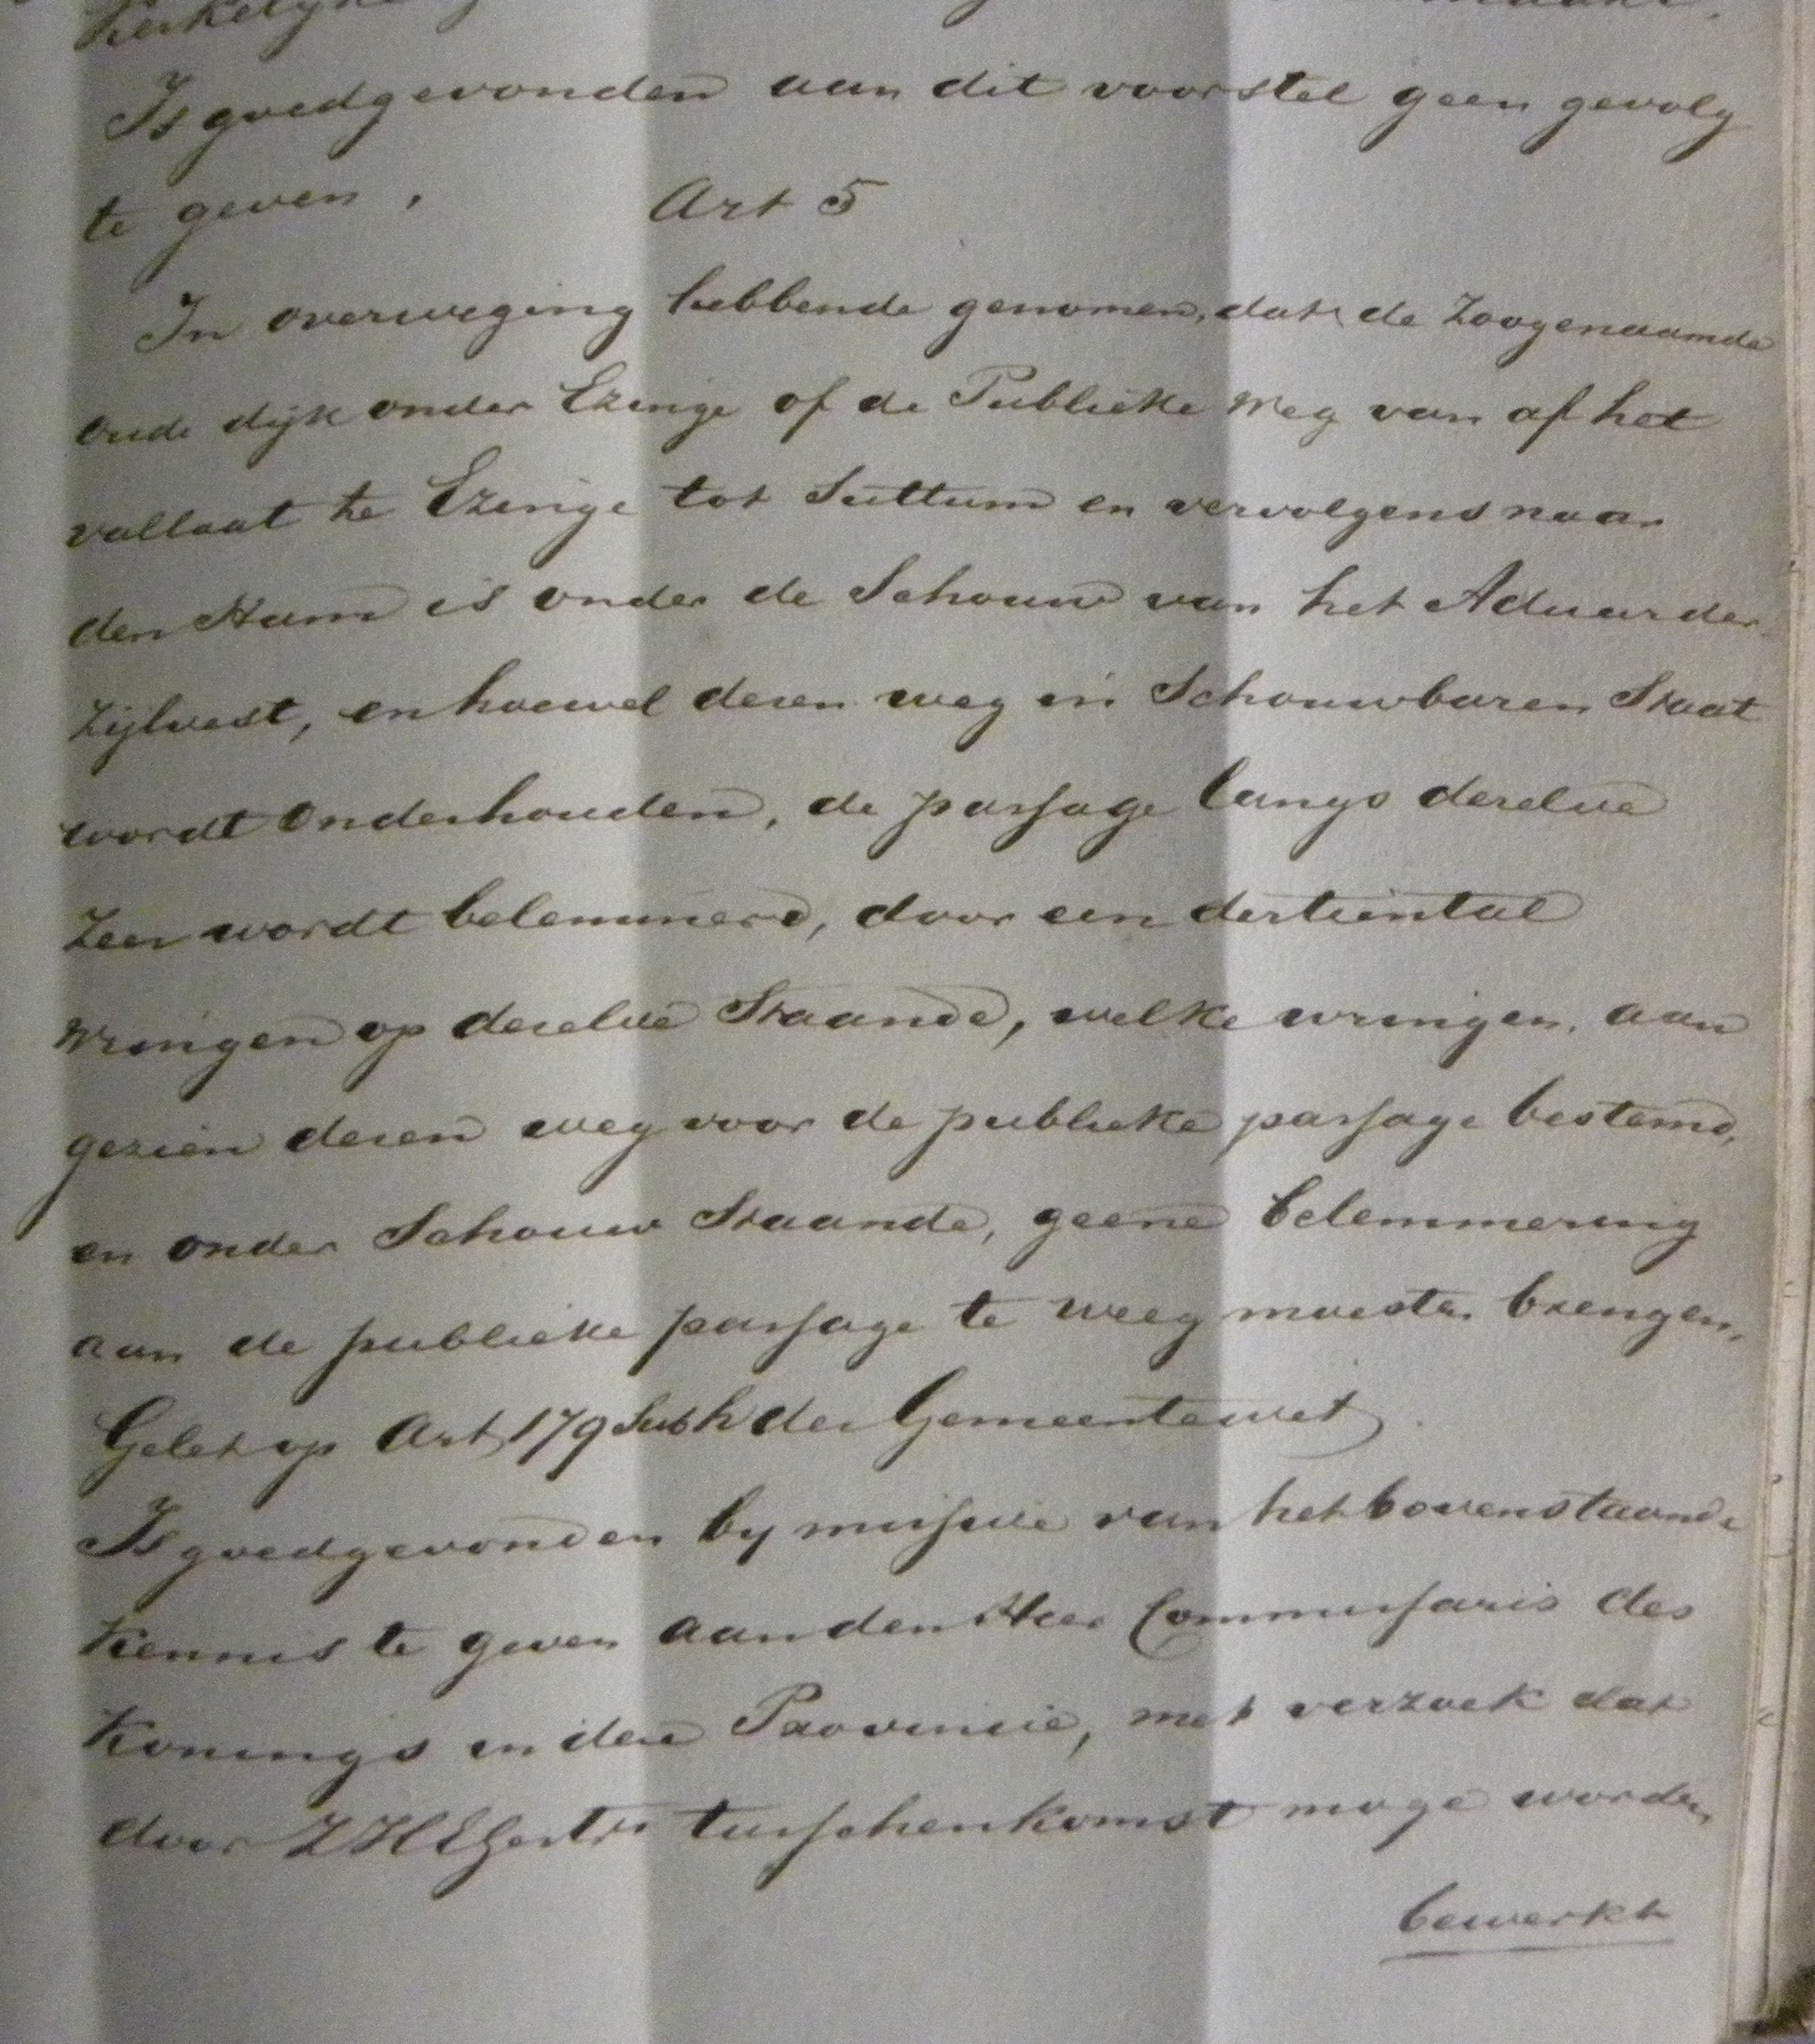 Is goedgevonden aan dit voorstel geen gevolg
te geven,
Art 5
In overweging hebbende genomen, dat de Zoogenaamde
oude dijk onder Ezinge of de Publieke Weg van af het
vallaat te Ezinge tot Suttum en vervolgens naar
den Ham is onder de Schouw van het Aduarder
Zijlvest, en hoewel dezen weg in Schouwbaren Staat
wordt Onderhouden, de passage langs dezelve
Zeer wordt belemmerd, door een dertiental
Wringen op dezelve Staande, welke wringen, aan
gezien dezen weg voor de publieke passage bestemd,
en onder Schouw Staande, geene belemmering
aan de publieke passage te weeg moesten brengen,
Gelet op Art 179 Sub h der Gemeentewet
Is goedgevonden by missive van het bovenstaande
Kennis te geven aan den Heer Commissaris des
Konings in deze Provincie, met verzoek dat
door ZHEGestr tusschenkomst moge worden
bewerkt